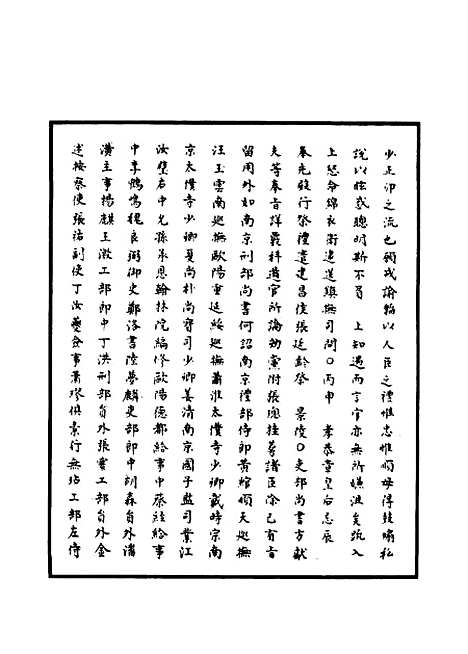 少正卯之流也願戒諭韜以人臣之禮惟忠惟順毋得鼓嘯私
說以眩惑聰明斯不辱　上知遇而言官亦無所嫌波矣疏入
上怒命錦衣衛逮送鎮撫司問○丙申　孝恭章皇后忌辰
奉先殿行祭禮遣建昌侯張延齡祭　景陵○吏部尚書方獻
夫等奉旨詳覈科道官所論劾黨附張璁桂萼諸臣除已有旨
留用外如南京刑部尚書何詔南京禮部侍郎黃綰順天巡撫
汪玉雲南巡撫歐陽重延綏巡撫蕭淮太僕寺少卿戴時宗南
京太僕寺少卿夏尚朴尚寶司少卿姜清南京國子監司業江
汝璧右中允孫承恩翰林院編修歐陽德都給事中蔡經給事
中李鶴鳴魏良弼御史鄭洛書陸夢麟吏部郎中胡森員外潘
潢主事楊麒王激工部郎中丁洪刑部員外張寰工部員外金
述按察使張祐副使丁汝夔僉事蕭璆俱素行無玷工部左侍